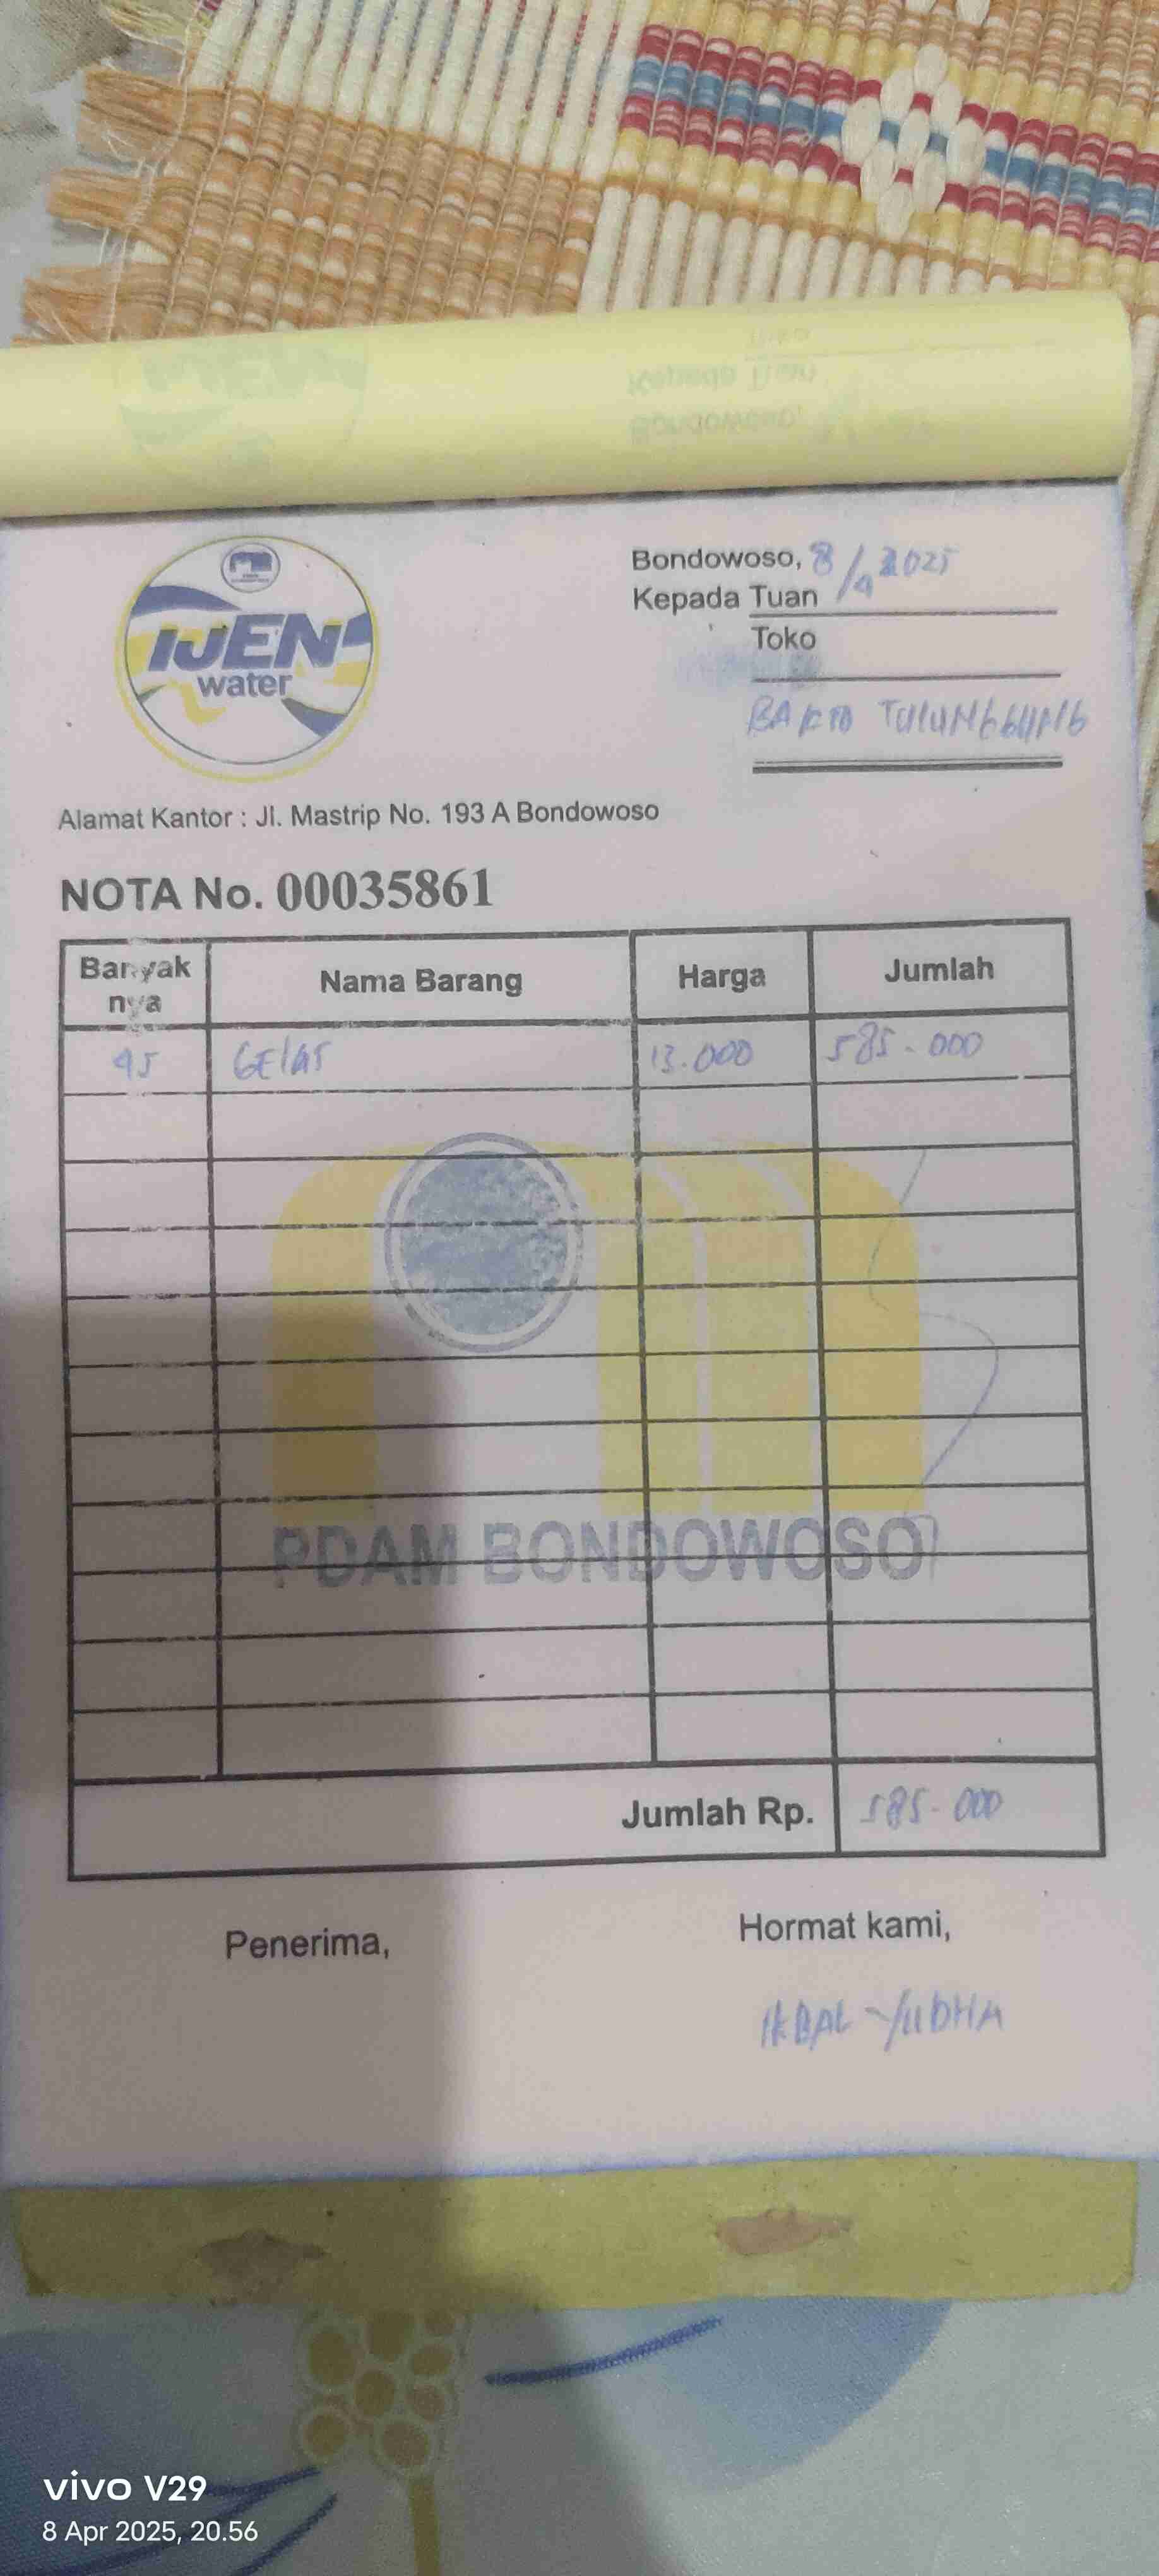 IJEN
water
Bondowoso, 8/4 2025
Kepada Tuan
Toko
TULUNGGUNG
Alamat Kantor : Jl. Mastrip No. 193 A Bondowoso
NOTA No. 00035861
Banyak nya Nama Barang Harga Jumlah
45 GElAS 13.000 585.000
PDAM BONDOWOSO
Jumlah Rp. 585.000
Penerima, Hormat kami,
IKBAL - YUDHA
vivo V29
8 Apr 2025, 20.56